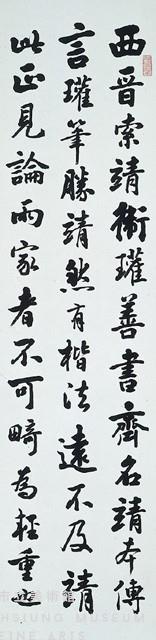 西晉索靖衛瓘善書齊名靖本傳
言瓘筆勝靖然有楷法遠不及靖
此正見論兩家者不可畸為輕重也
市立美術館
HSIUNG MUSEUM
FINE ARTS